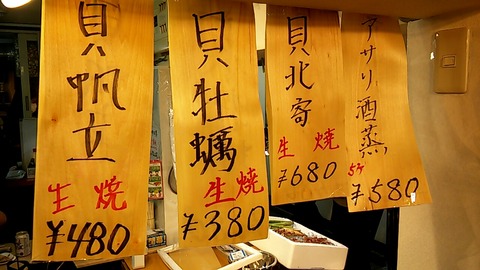 貝帆立
生 焼
¥480
貝牡蠣
生焼
¥380
貝北寄
生 焼
¥680
アサリ酒蒸
5ケ
¥580